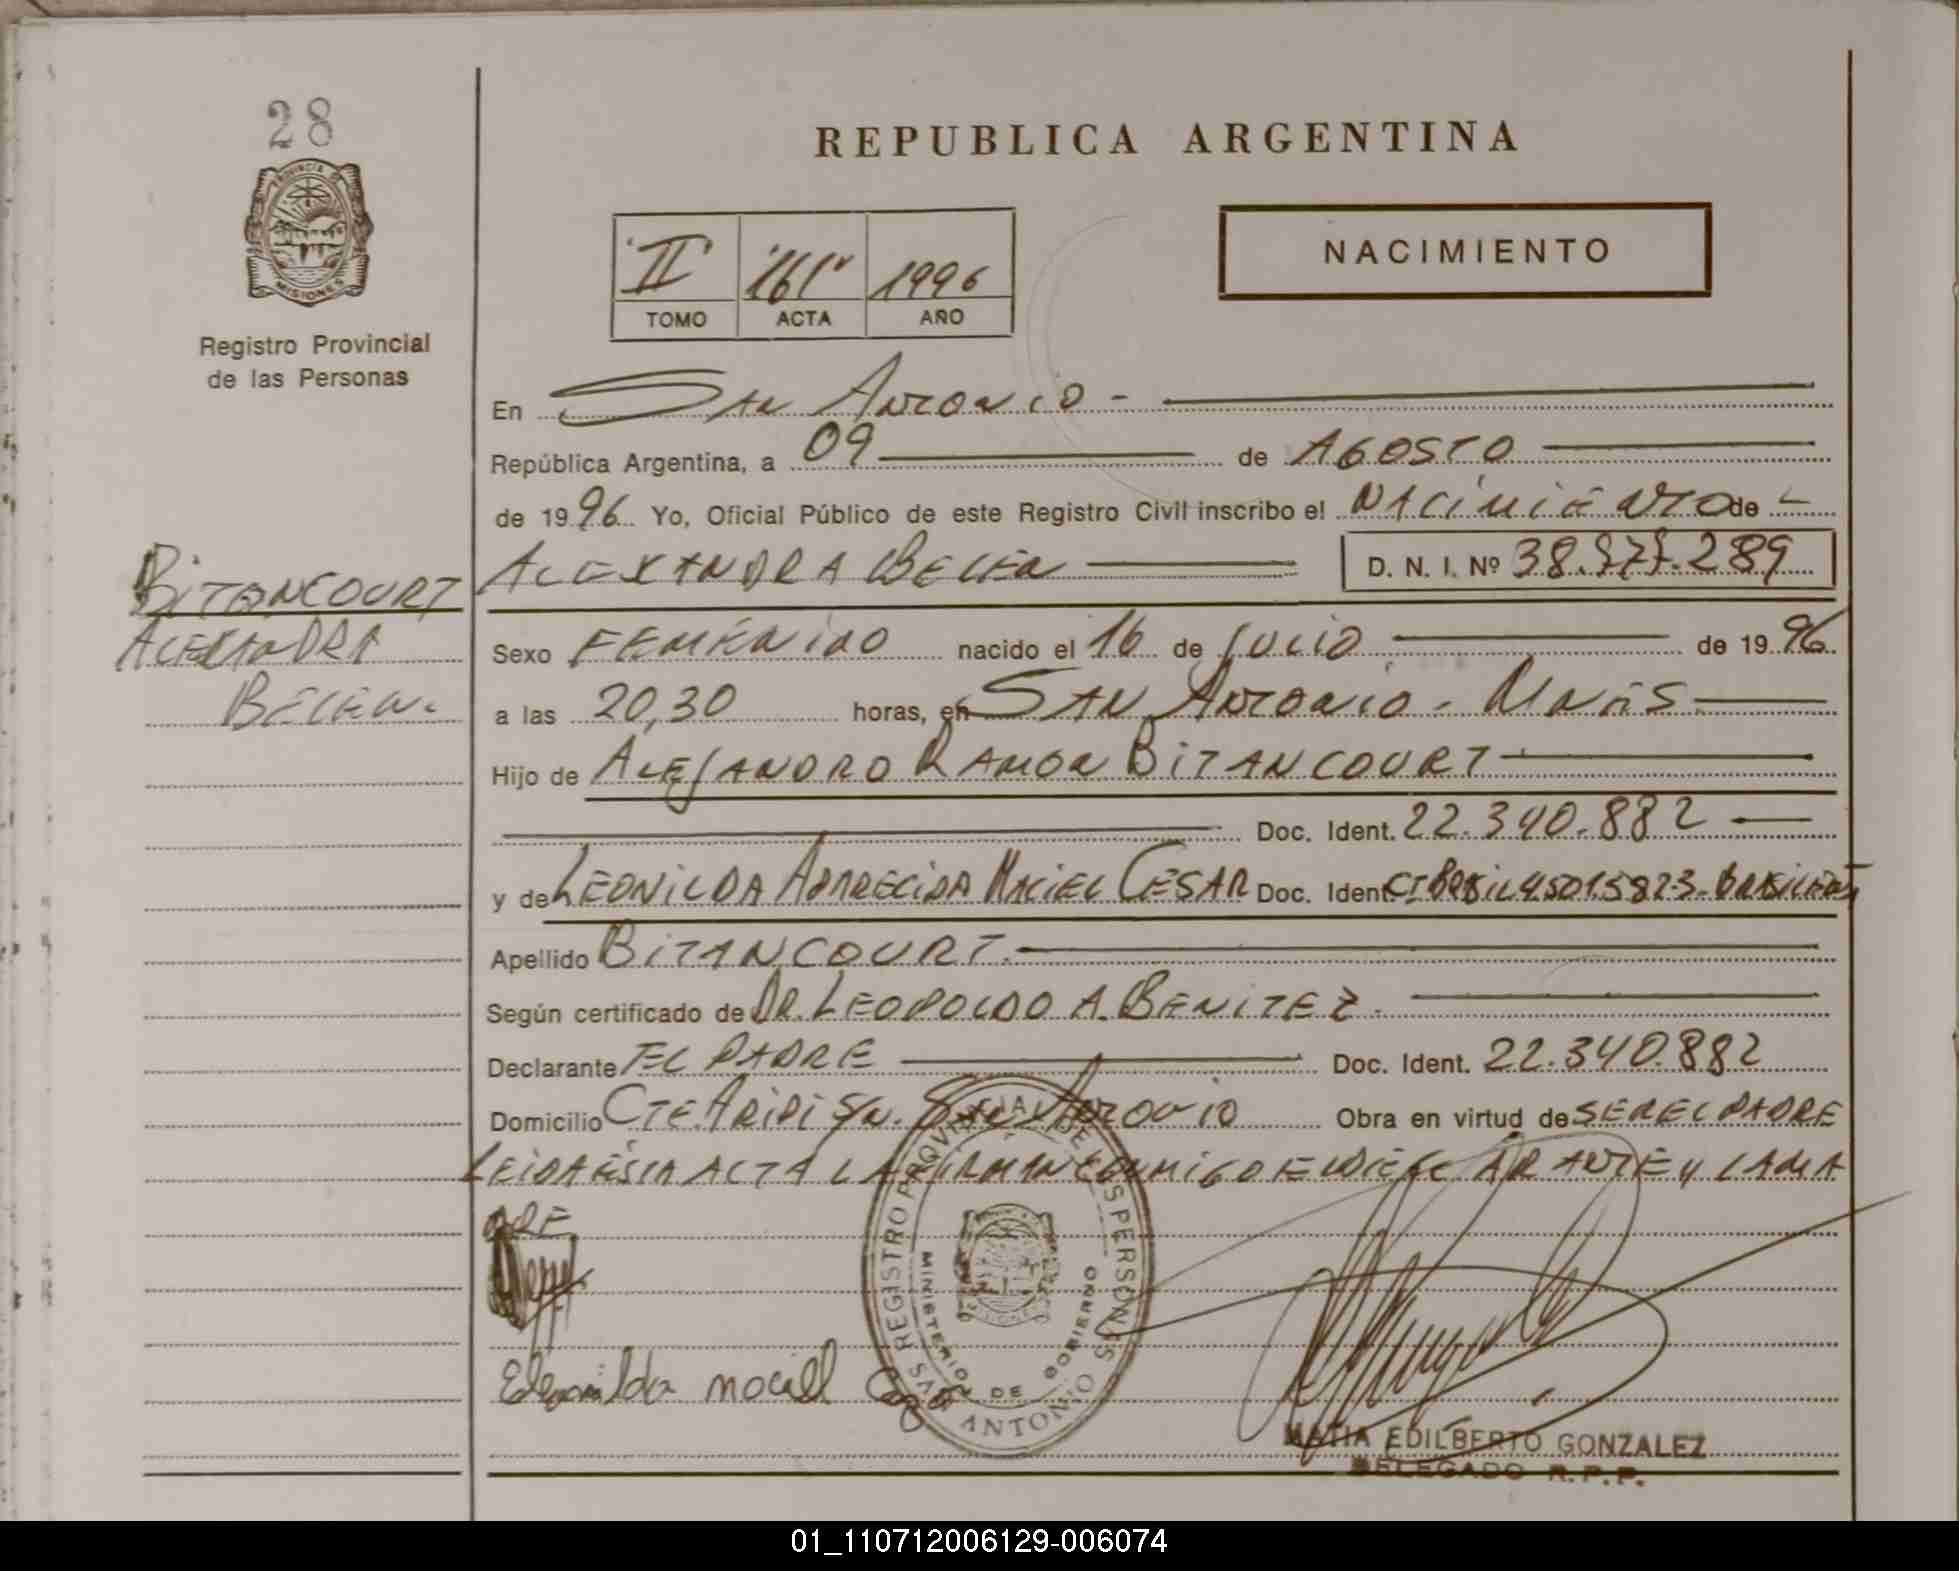 28
PROVINCIA DE
MISIONES
Registro Provincial
de las Personas
REPUBLICA ARGENTINA
NACIMIENTO
"II" "161" 1996
TOMO ACTA AÑO
En San Antonio -
República Argentina, a 09 de AGOSTO
de 1996 Yo, Oficial Público de este Registro Civil inscribo el NACIMIENTO de
ALEXANDRA BELEN D. N. I. Nº 289
BITANCOURT
ALEXANDRA
BELEN.
Sexo FEMENINO nacido el 16 de JULIO de 1996
a las 20,30 horas, en SAN ANTONIO - Mnes
Hijo de ALEJANDRO RAMON BITANCOURT
Doc. Ident. 22.340.882
y de LEONILDA APARECIDA MACIEL CESAR Doc. Ident.
Apellido BITANCOURT.
Según certificado de DR. LEOPOLDO A. BENITEZ.
Declarante EL PADRE Doc. Ident. 22.340.882
Domicilio CTE ARIPI S/N. San Antonio Obra en virtud de SER EL PADRE
LEIDA ESTA ACTA LA FIRMAN CONMIGO EL DECLARANTE y LA MA
DRE
REGISTRO PROVINCIAL DE LAS PERSONAS
MINISTERIO DE GOBIERNO
SAN ANTONIO
MATIA EDILBERTO GONZALEZ
DELEGADO R.P.P.
01_110712006129-006074